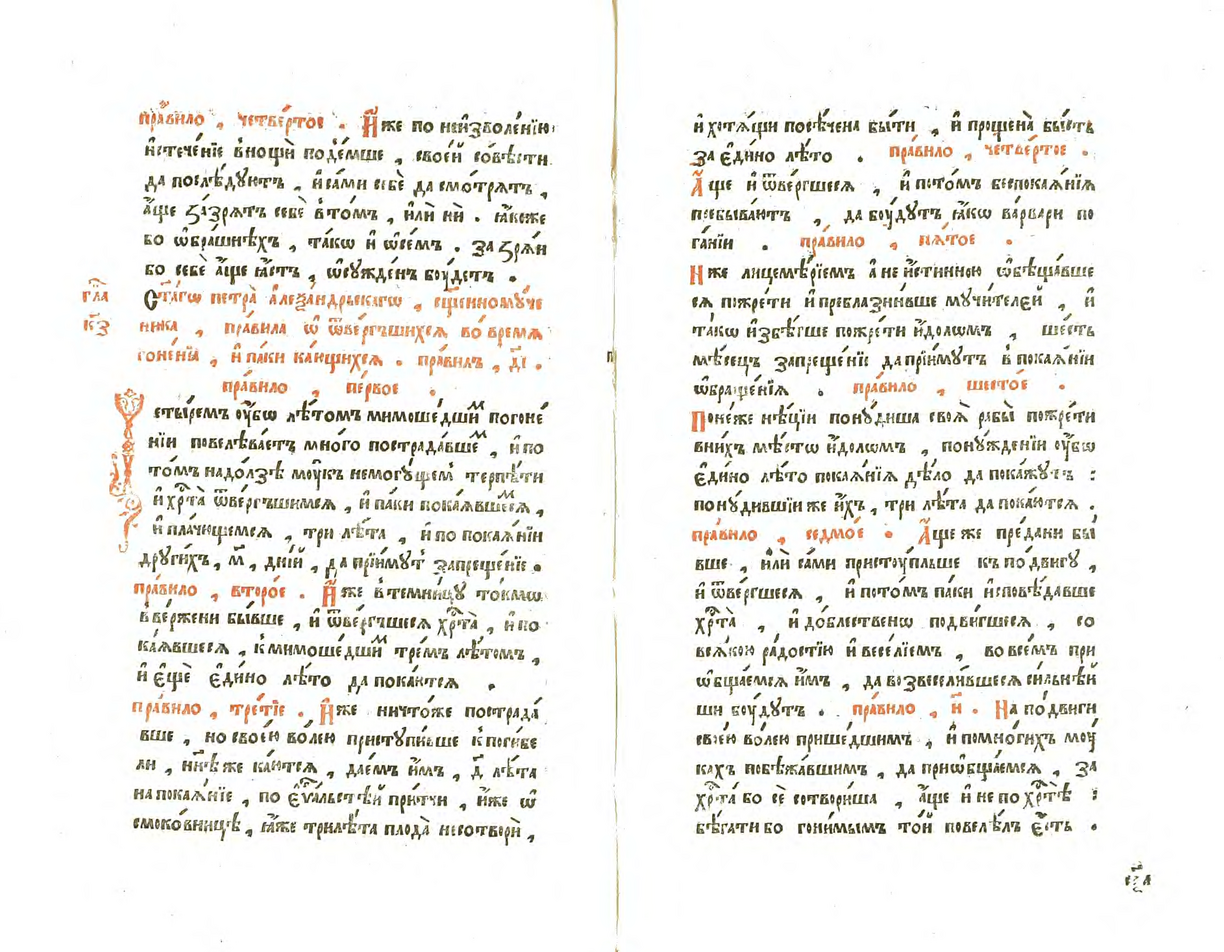 пра́вило , четве́ртое . И҆́же по неи҆зволе́нїю
и҆стече́нїе вно́щи поде́мше , свое́й со́вѣсти
да послѣ́дуютъ , и҆ са́ми себѐ да смо́трятъ ,
а҆́ще ѕа́зрятъ себѐ в то́мъ , и҆лѝ нѝ . ꙗ҆́коже
бо ѡ҆ бра́шнѣхъ , та́кѡ и҆ ѡ҆ се́мъ . за ѕря́и
бо себѐ а҆́ще ꙗ҆́стъ , ѡ҆сужде́нъ бꙋ́детъ .
гла
к҃з
Ст҃а́гѡ петра̀ а҆леѯандрьскагѡ , сщ҃енномꙋче
ника , пра́вила ѡ҆ ѿве́ргъшихся во́ время
гоне́нїа , и҆ па́ки ка́ющихся . пра́вилъ , д҃і .
пра́вило , пе́рвое .
Четы́ремъ ᲂу҆́бѡ лѣ́томъ мимоше́дшимъ погоне́
нїи повелѣва́етъ мно́го пострада́вшемъ , и҆ по
то́мъ надо́лзѣ мꙋ́къ немогꙋ́щемъ терпѣ́ти
и҆ хрⷭ҇та̀ ѿве́ргъшимся , и҆ па́ки пока́явшемся ,
и҆ пла́чꙋщемся , три лѣ́та , и҆ по покая́нїи
дрꙋги́хъ , м҃ , дні́й , да прїи́мꙋтъ запреще́нїе .
пра́вило , второ́е . И҆́же в темни́цꙋ то́кмѡ
вве́ржени бы́вше , и҆ ѿве́ргшеся хрⷭ҇та̀ , и҆ по
ка́явшеся , к мимоше́дшимъ тре́мъ лѣ́томъ ,
и҆ є҆щѐ є҆ди́но лѣ́то да пока́ются .
пра́вило , тре́тїе . И҆́же ничто́же пострада́
вше , но свое́ю во́лею пристꙋпи́вше к поги́бе
ли , нн҃ѣ же ка́ются , дае́мъ и҆́мъ , д҃ лѣ́та
на покая́нїе , по є҆ѵⷢ҇льстѣй при́тчи , ꙗ҆́же ѡ҆
смоко́вницѣ , ꙗ҆́же три лѣ́та плода̀ несотворѝ ,
и҆ хотя́щи посѣ́чена бы́ти , и҆ проще́на бы́сть
за є҆ди́но лѣ́то . пра́вило , четве́ртое .
А҆́ще и҆ ѿве́ргшеся , и҆ пото́мъ беспокая́нїя
пребыва́ютъ , да бꙋ́дꙋтъ ꙗ҆́кѡ ва́рвари по
га́нїи . пра́вило , пя́тое .
И҆́же лицемѣ́рїемъ а҆ не и҆́стинною ѡ҆бѣща́вше
ся пожре́ти и҆ преблазни́вше мꙋчи́телей , и҆
та́кѡ и҆збѣ́гше пожре́ти и҆́доломъ , ше́сть
мѣ́сецъ запреще́нїе да прїи́мꙋтъ в покая́нїи
ѡ҆браще́нїя . пра́вило , шесто́е .
Поне́же нѣ́цїи понꙋ́диша своя̀ рабы̀ пожре́ти
вни́хъ мѣ́стѡ и҆́доломъ , понꙋжде́нїи ᲂу҆́бѡ
є҆ди́но лѣ́то покая́нїя дѣ́ло да пока́жꙋтъ :
понꙋ́дившїи же и҆́хъ , три лѣ́та да пока́ются .
пра́вило , седмо́е . А҆́ще же пре́дани бы́
вше , и҆лѝ са́ми пристꙋ́пльше къ по́двигꙋ ,
и҆ ѿве́ргшеся , и҆ пото́мъ па́ки и҆сповѣ́давше
хрⷭ҇та̀ , и҆ до́блественѡ подви́гшеся , со
вся́кою ра́достїю и҆ весе́лїемъ , во все́мъ при
ѡ҆бща́емся и҆́мъ , да возвесели́вшеся си́льнѣй
ши бꙋ́дꙋтъ . пра́вило , и҃ . На по́двиги
свое́ю во́лею прише́дшимъ , и҆ помно́гихъ мꙋ́
кахъ побѣжа́вшимъ , да приѡ҆бща́емся , за
хрⷭ҇та̀ бо сѐ сотвори́ша , а҆́ще и҆ не по хрⷭ҇тѣ̀ :
бѣ́гати бо гони́мымъ то́й повелѣ́лъ є҆́сть .